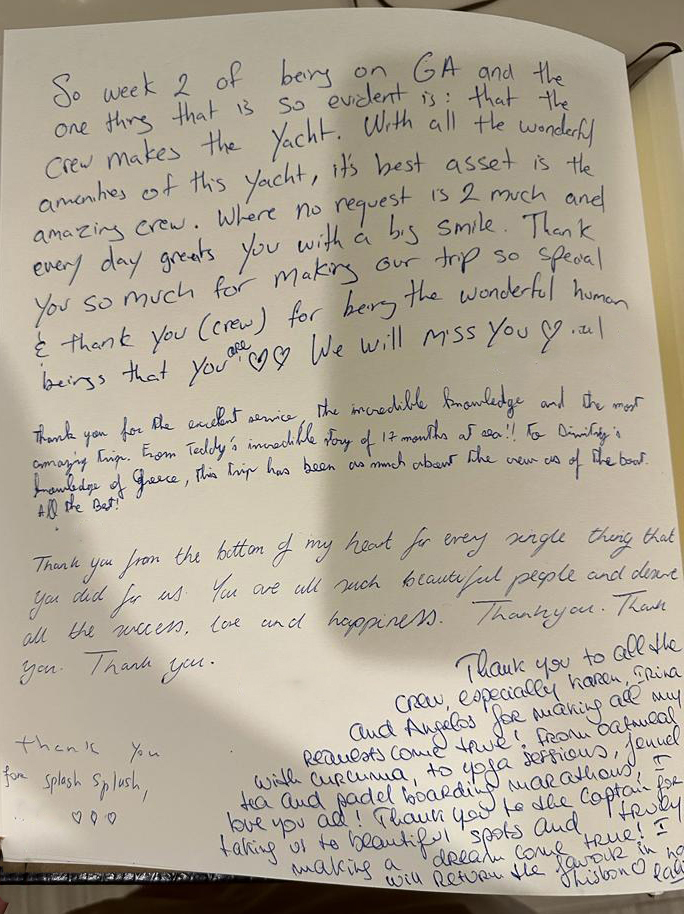 So week 2 of being on GA and the
one thing that is so evident is: that the
crew makes the Yacht. With all the wonderful
amenities of this Yacht, it's best asset is the
amazing crew. Where no request is 2 much and
every day greets you with a big smile. Thank
you so much for making our trip so special
& thank you (crew) for being the wonderful human
beings that you are ♡♡ We will miss you ♡
Thank you for the excellent service, the incredible knowledge and the most
amazing trip. From Teddy's incredible story of 17 months at sea!! To Dimitry's
knowledge of Greece, this trip has been as much about the crew as of the boat.
All the Best!
Thank you from the bottom of my heart for every single thing that
you did for us. You are all such beautiful people and deserve
all the success, love and happiness. Thankyou. Thank
you. Thank you.
thank you
for splash splash,
♡♡♡
Thank you to all the
crew, especially Karen, Irina
and Angelos for making all my
requests come true! From oatmeal
with curcuma, to yoga sessions, fennel
tea and padel boarding marathons! I
love you all! Thank you to the Captain for
taking us to beautiful spots and truly
making a dream come true! I
will return the favour in
Lisbon ♡